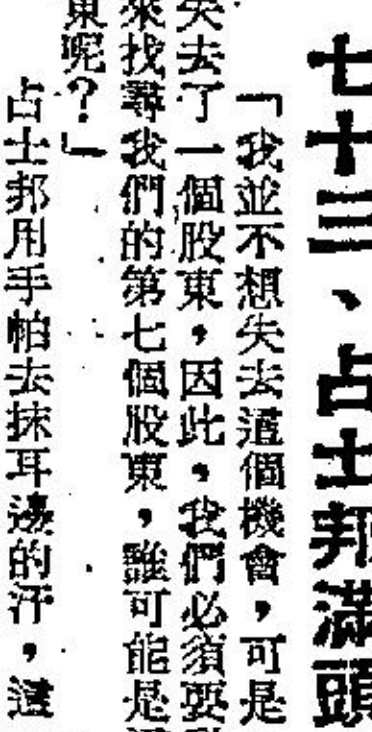 七十三、占士邦滿頭
「我並不想失去這個機會,可是
失去了一個股東,因此,我們必須要
來找尋我們的第七個股東,誰可能是
東呢?」
占士邦用手帕去抹耳邊的汗,這